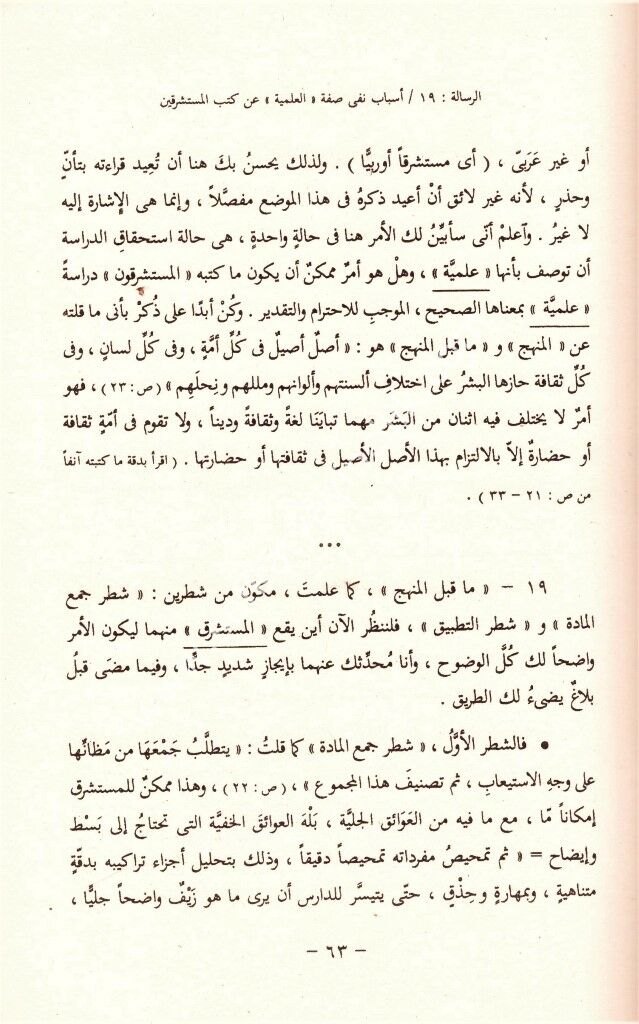 الرسالة : ١٩ / أسباب نفى صفة « العلمية » عن كتب المستشرقين
أو غير عَرَبىّ ، ( أى مستشرقاً أوربيًّا ) . ولذلك يحسنُ بكَ هنا أن تُعِيد قراءته بتأنٍّ
وحذرٍ ، لأنه غير لائق أنْ أعيد ذكرهُ فى هذا الموضع مفصَّلاً ، وإنما هى الإشارة إليه
لا غيرُ . وآعلمْ أنّى سأبيِّنُ لك الأمر هنا فى حالةٍ واحدةٍ ، هى حالة استحقاقِ الدراسة
أن توصف بأنها « علميَّة » ، وهلْ هو أمرٌ ممكنٌ أن يكون ما كتبه « المستشرقون » دراسةً
« علميَّة » بمعناها الصحيح ، الموجبِ للاحترام والتقدير . وكُنْ أبدًا على ذُكْرٍ بأنى ما قلته
عن « المنهج » و « ما قبل المنهج » هو : « أصلٌ أصيلٌ فى كُلّ أمَّةٍ ، وفى كُلّ لسان ، وفى
كُلّ ثقافة حازها البشرُ على اختلافِ ألسنتهم وألوانهم ومللهم ونِحلَهِم » ( ص : ٢٣ ) ، فهو
أمرٌ لا يختلف فيه اثنان من البَشَر مهما تبايَنَا لغةً وثقافةً وديناً ، ولا تقوم فى أمّةٍ ثقافة
أو حضارةٌ إلاّ بالالتزام بهذا الأصل الأصيل فى ثقافتها أو حضارتها . ( اقرأ بدقة ما كتبته آنفاً
من ص : ٢١ – ٣٣ ) .
• • •
١٩ – « ما قبل المنهج » ، كما علمتَ ، مكوّن من شطرين : « شطر جمع
المادة » و « شطر التطبيق » ، فلننظُر الآن أين يقع « المستشرق » منهما ليكون الأمر
واضحاً لك كُلَّ الوضوح ، وأنا مُحدِّثك عنهما بإيجازٍ شديدٍ جدًّا ، وفيما مضَى قبلُ
بلاغٌ يضىءُ لك الطريق .
• فالشطر الأوَّلُ ، « شطر جمع المادة » كما قلتُ : « يتطلَّبُ جَمْعَهَا من مَظانِّها
على وجهِ الاستيعابِ ، ثم تصنيفَ هذا المجموع » ، ( ص : ٢٢ ) ، وهذا ممكنٌ للمستشرق
إمكاناً مّا ، مع ما فيه من العَوائق الجليَّة ، بَلْهَ العوائقَ الخفيَّة التى تحتاجُ إلى بَسْط
وإيضاح = « ثم تمحيصُ مفرداته تمحيصاً دقيقاً ، وذلك بتحليل أجزاء تراكيبه بدقّةٍ
متناهيةٍ ، وبمهارةٍ وحِذْقٍ ، حتّى يتيسرَّ للدارس أن يرى ما هو زَيْفٌ واضحاً جليًّا ،
– ٦٣ –